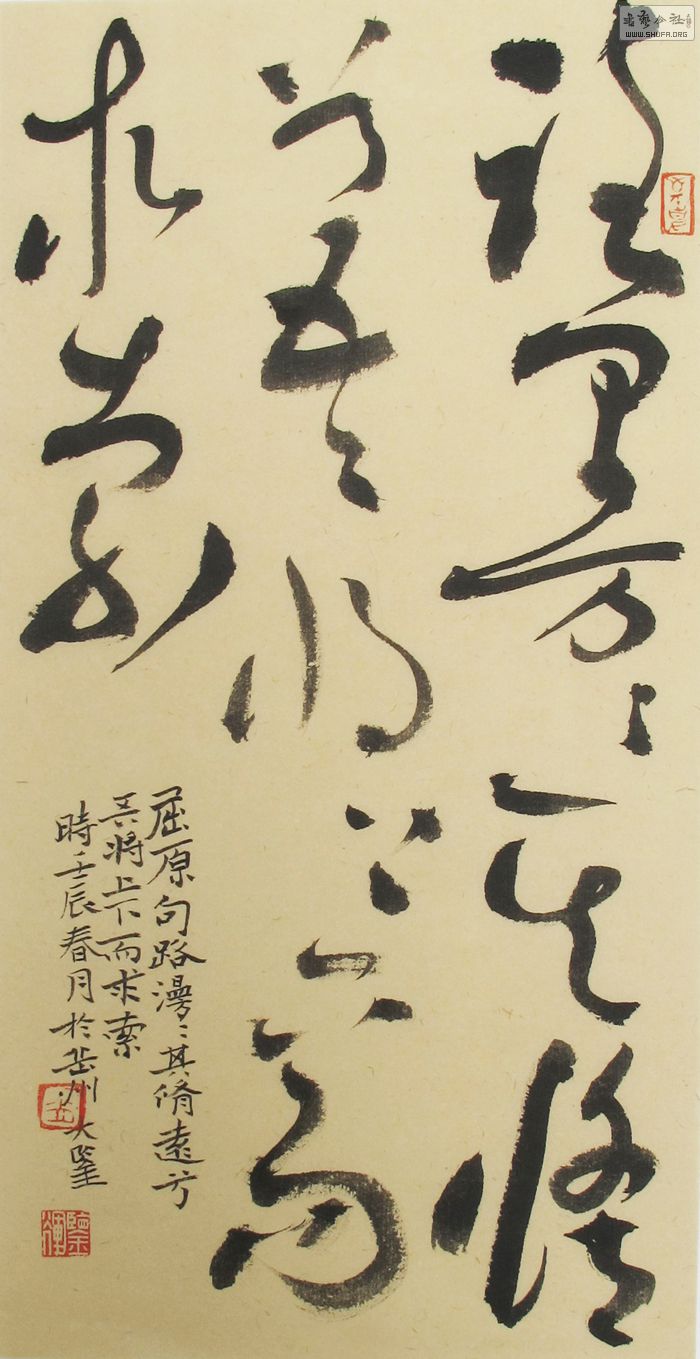 路漫〻其修遠
兮吾将上下而
求索
屈原句路漫〻其脩遠兮
吾将上下而求索
時壬辰春月於岳州大鋻
WWW.SHUFA.ORG